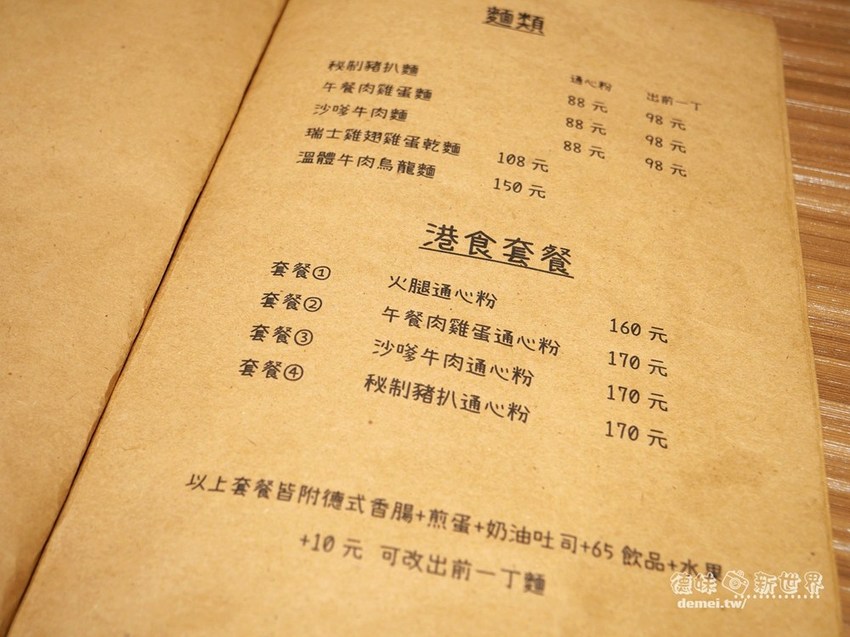 麵類
通心粉 出前一丁
秘制豬扒麵 88 元 98 元
午餐肉雞蛋麵 88 元 98 元
沙嗲牛肉麵 88 元 98 元
瑞士雞翅雞蛋乾麵 108 元
溫體牛肉烏龍麵 150 元
港食套餐
套餐① 火腿通心粉 160 元
套餐② 午餐肉雞蛋通心粉 170 元
套餐③ 沙嗲牛肉通心粉 170 元
套餐④ 秘制豬扒通心粉 170 元
以上套餐皆附德式香腸+煎蛋+奶油吐司+65 飲品+水果
+10 元 可改出前一丁麵
德味 新世界
demei.tw/